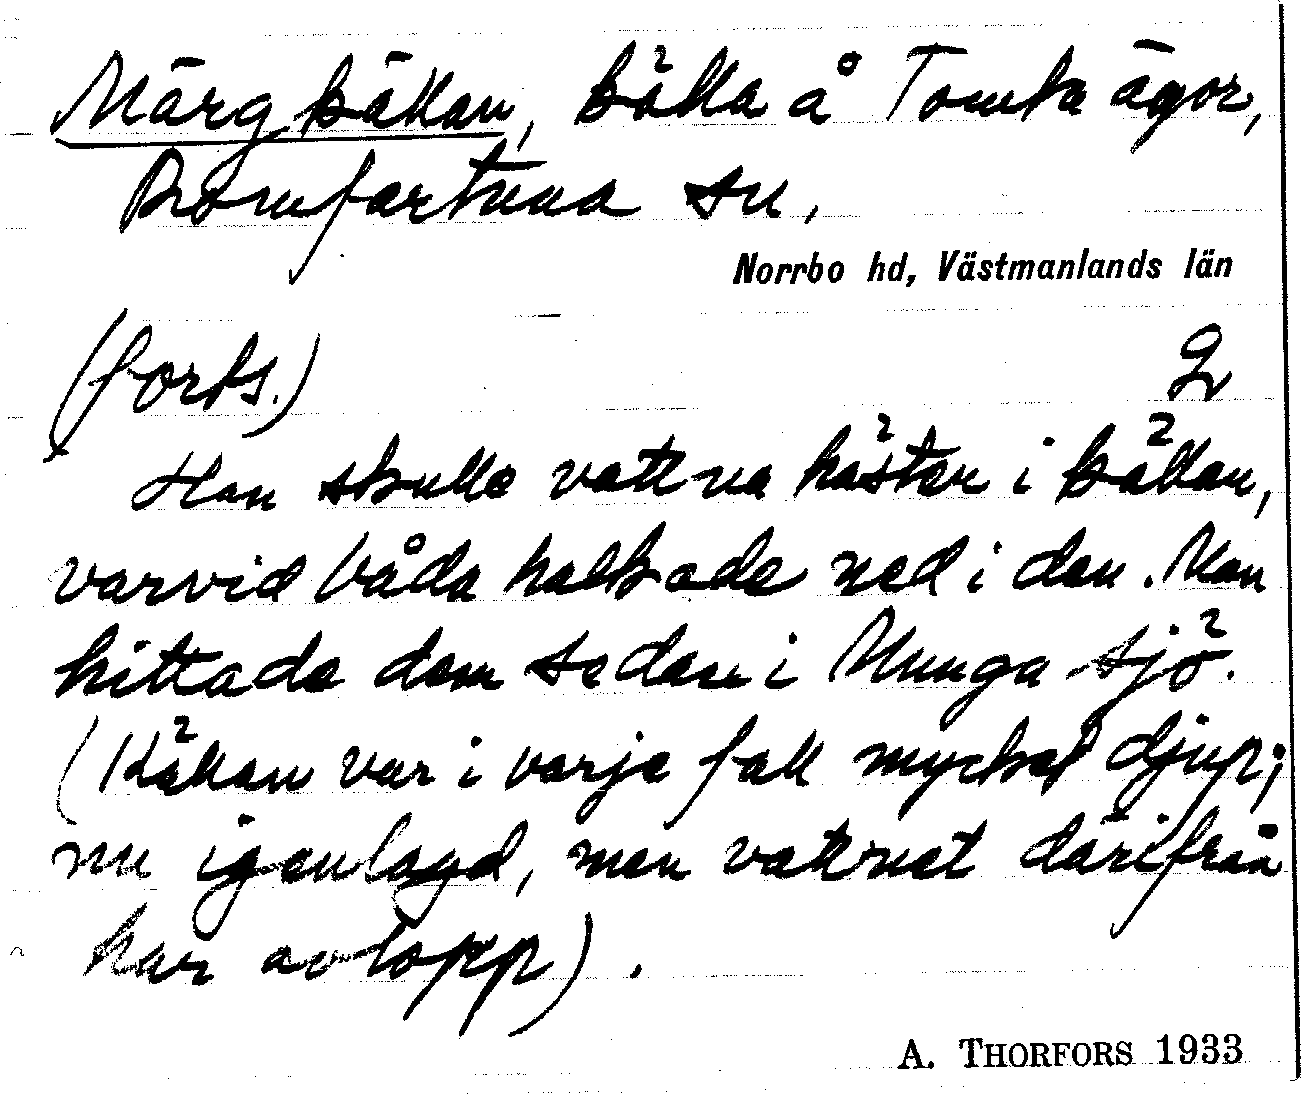 Märgkällan, källa å Tomta ägor,
Romfartuna sn,
Norrbo hd, Västmanlands län
(forts.) 2
Han skulle vattna hästar i källan,
varvid båda halkade ned i den. Man
hittade dem sedan i Nunga sjö.
(Källan var i varje fall mycket djup;
nu igenlagd, men vattnet därifrån
har avlopp).
A. THORFORS 1933